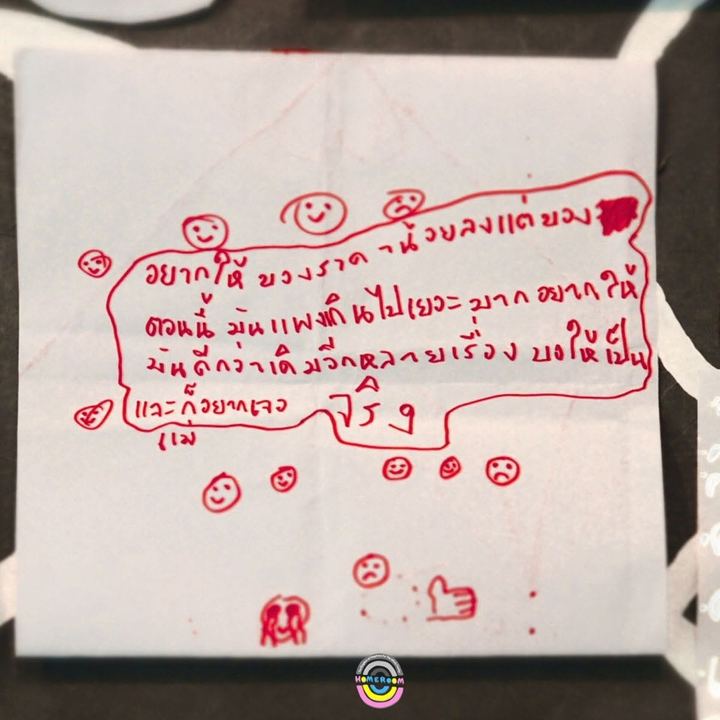 อยากให้ ของราคาน้อยลงแต่ของ
ตอนนี้ มันแพงเกินไปเยอะมากอยากให้
มันดีกว่าเดิมอีกหลายเรื่อง ขอให้เป็น
จริงๆ
และก็อยากเจอ
แม่
HOMEROOM